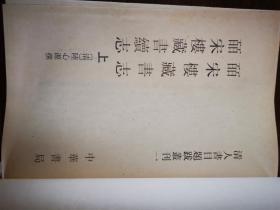 皕宋樓藏書志
皕宋樓藏書續志
上
〔清〕陸心源撰
清人書目題跋叢刊一
中華書局